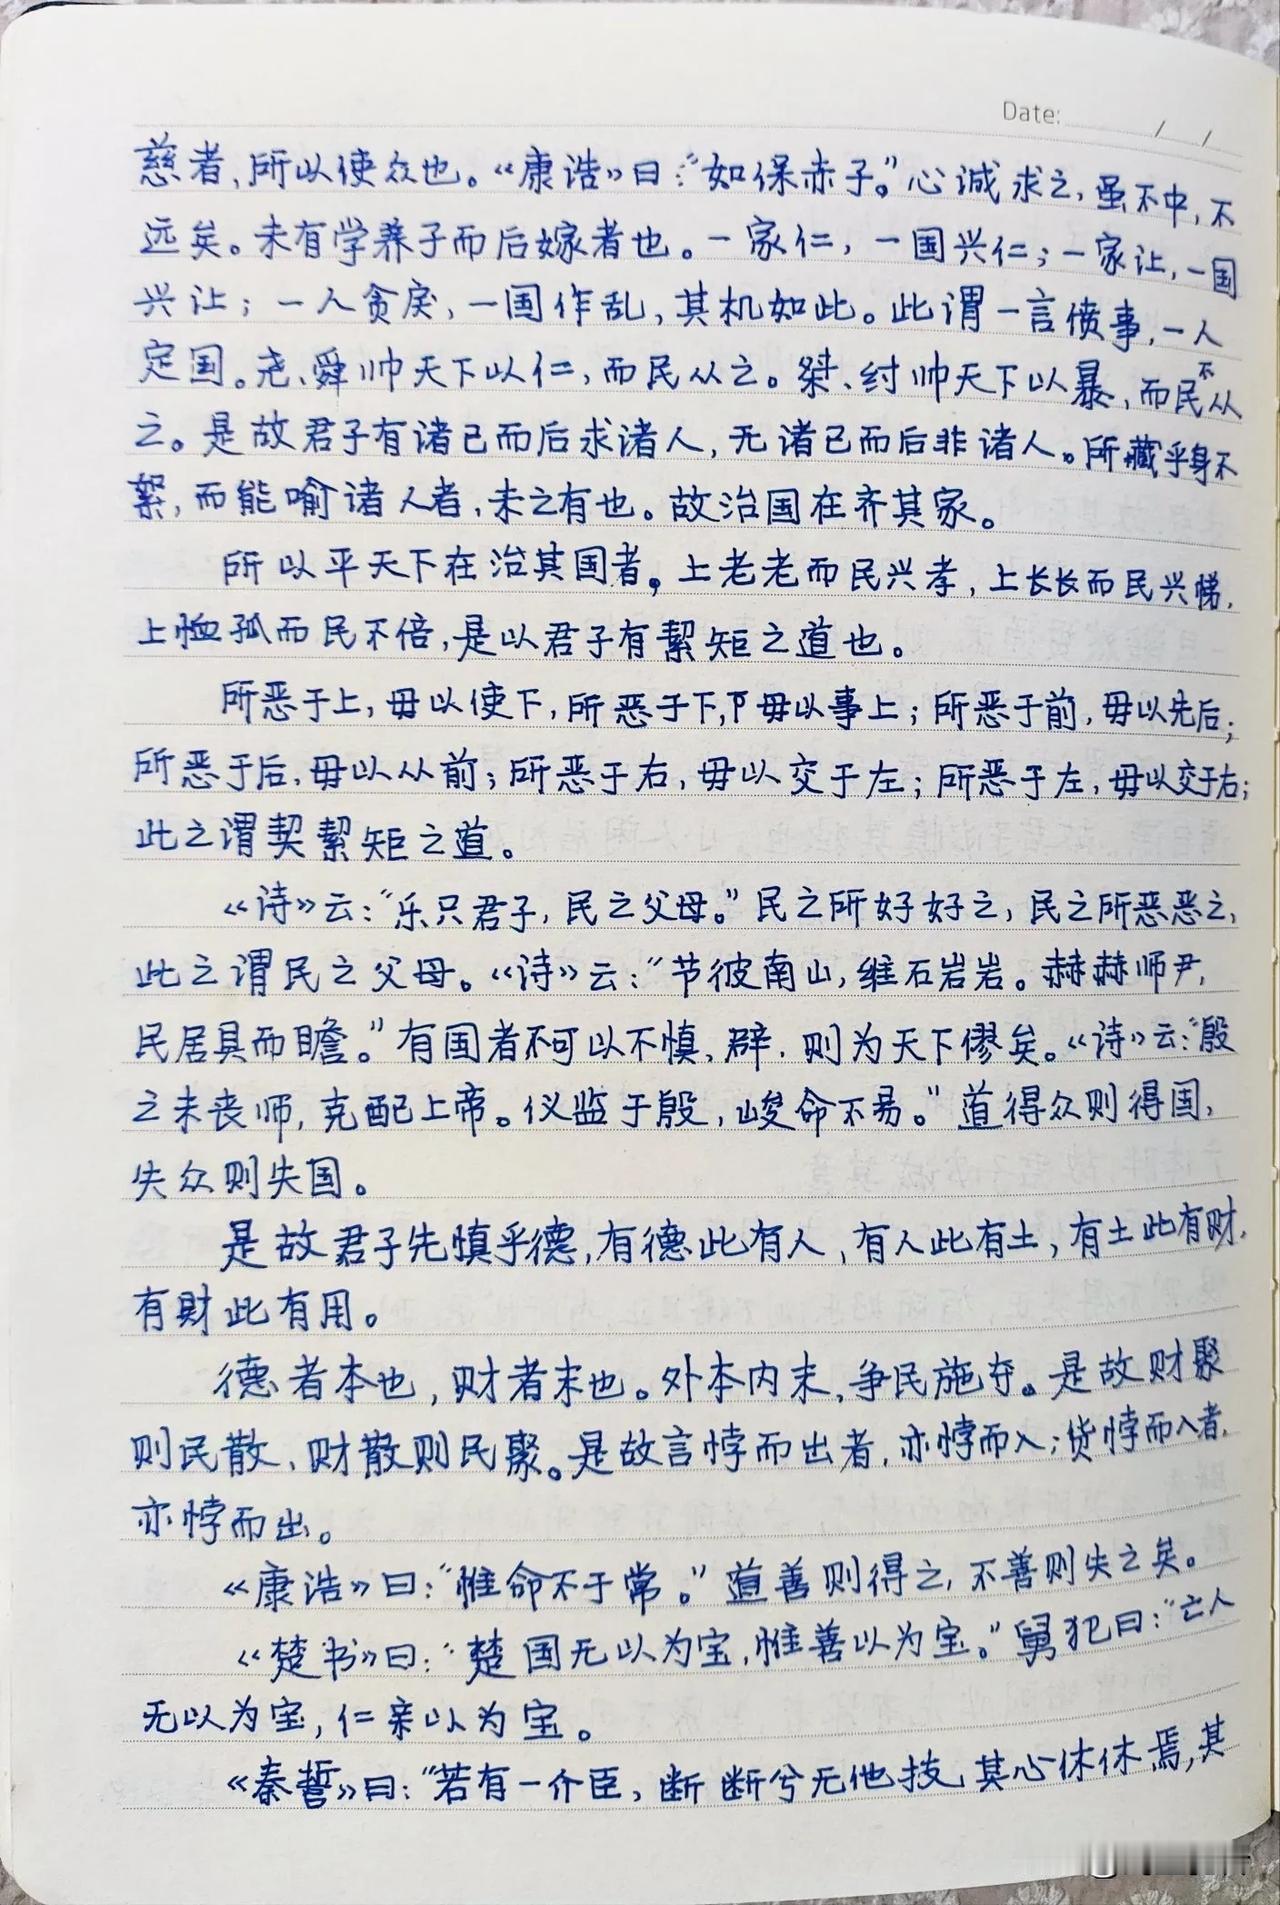 Date: / /
慈者,所以使众也。《康诰》曰:“如保赤子。”心诚求之,虽不中,不
远矣。未有学养子而后嫁者也。一家仁,一国兴仁;一家让,一国
兴让;一人贪戾,一国作乱,其机如此。此谓一言偾事,一人
定国。尧、舜帅天下以仁,而民从之。桀、纣帅天下以暴,而民不从
之。是故君子有诸己而后求诸人,无诸己而后非诸人。所藏乎身不
絮,而能喻诸人者,未之有也。故治国在齐其家。
所以平天下在治其国者。上老老而民兴孝,上长长而民兴悌,
上恤孤而民不倍,是以君子有絜矩之道也。
所恶于上,毋以使下,所恶于下,毋以事上;所恶于前,毋以先后;
所恶于后,毋以从前;所恶于右,毋以交于左;所恶于左,毋以交于右;
此之谓契絜矩之道。
《诗》云:“乐只君子,民之父母。”民之所好好之,民之所恶恶之,
此之谓民之父母。《诗》云:“节彼南山,维石岩岩。赫赫师尹,
民居具而瞻。”有国者不可以不慎,辟,则为天下僇矣。《诗》云:“殷
之未丧师,克配上帝。仪监于殷,峻命不易。”道得众则得国,
失众则失国。
是故君子先慎乎德,有德此有人,有人此有土,有土此有财,
有财此有用。
德者本也,财者末也。外本内末,争民施夺。是故财聚
则民散,财散则民聚。是故言悖而出者,亦悖而入;货悖而入者,
亦悖而出。
《康诰》曰:“惟命不于常。”道善则得之,不善则失之矣。
《楚书》曰:“楚国无以为宝,惟善以为宝。”舅犯曰:“亡人
无以为宝,仁亲以为宝。
《秦誓》曰:“若有一介臣,断断兮无他技,其心休休焉,其